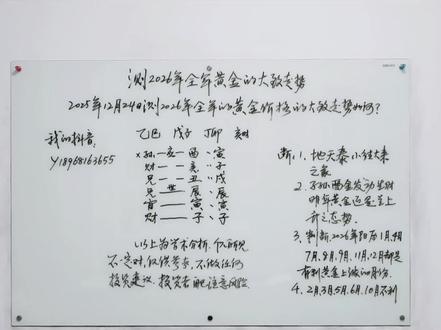 测2026年全年黄金的大致走势
2025年12月24日测2026年全年的黄金价格的大致走势如何?
我的抖音:
Y18968163655
乙巳 戊子 丁卯 亥时
×孙 — 亥 — 酉、寅
财 — — 亥、子
兄 — — 丑、戌
兄 世 辰、辰
官 — 寅、寅
财 — 子、子
以上为学术分析,仅研究
不一定对,仅供参考,不做任何
投资建议,投资者自己注意风险
断:1、地天泰小往大来
之象
2、子孙酉金发动生财
明年黄金还是呈上
升之态势.
3、判断2026年阳历1月,4月
7月,8月,9月,11月,12月都是
有利黄金上涨的月份.
4、2月,3月,5月,6月,10月不利